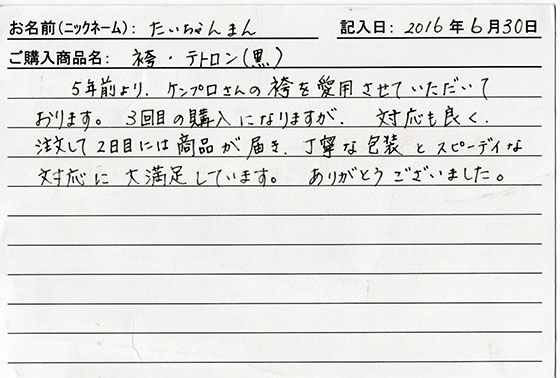 お名前(ニックネーム): たいちゃんまん 記入日: 2016年6月30日
ご購入商品名: 袴・テトロン(黒)
5年前より、ケンプロさんの袴を愛用させていただいて
おります。 3回目の購入になりますが、 対応も良く、
注文して2日目には商品が届き、丁寧な包装とスピーディな
対応に大満足しています。 ありがとうございました。